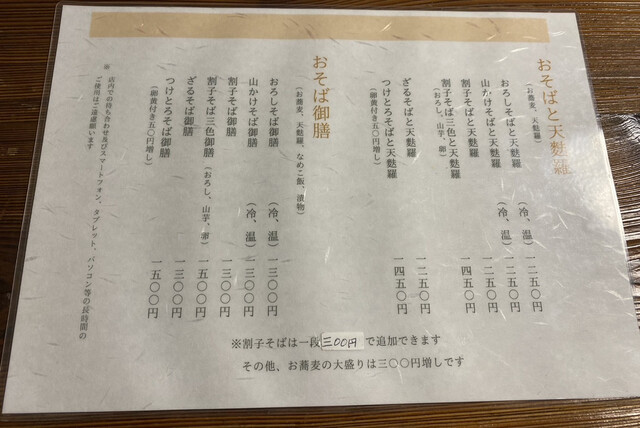 おそばと天麩羅
(お蕎麦、天麩羅)
おろしそばと天麩羅 (冷、温) 一二五〇円
山かけそばと天麩羅 (冷、温) 一二五〇円
割子そばと天麩羅 一二五〇円
割子そば三色と天麩羅 一四五〇円
(おろし、山芋、卵)
ざるそばと天麩羅 一二五〇円
つけとろそばと天麩羅 一四五〇円
(卵黄付き五〇円増し)
おそば御膳
(お蕎麦、天麩羅、なめこ飯、漬物)
おろしそば御膳 (冷、温) 一三〇〇円
山かけそば御膳 (冷、温) 一三〇〇円
割子そば御膳 一三〇〇円
割子そば三色御膳 (おろし、山芋、卵) 一五〇〇円
ざるそば御膳 一三〇〇円
つけとろそば御膳 一五〇〇円
(卵黄付き五〇円増し)
※ 店内での待ち合わせ及びスマートフォン、タブレット、パソコン等の長時間の
ご使用はご遠慮願います
※割子そばは一段三〇〇円で追加できます
その他、お蕎麦の大盛りは三〇〇円増しです